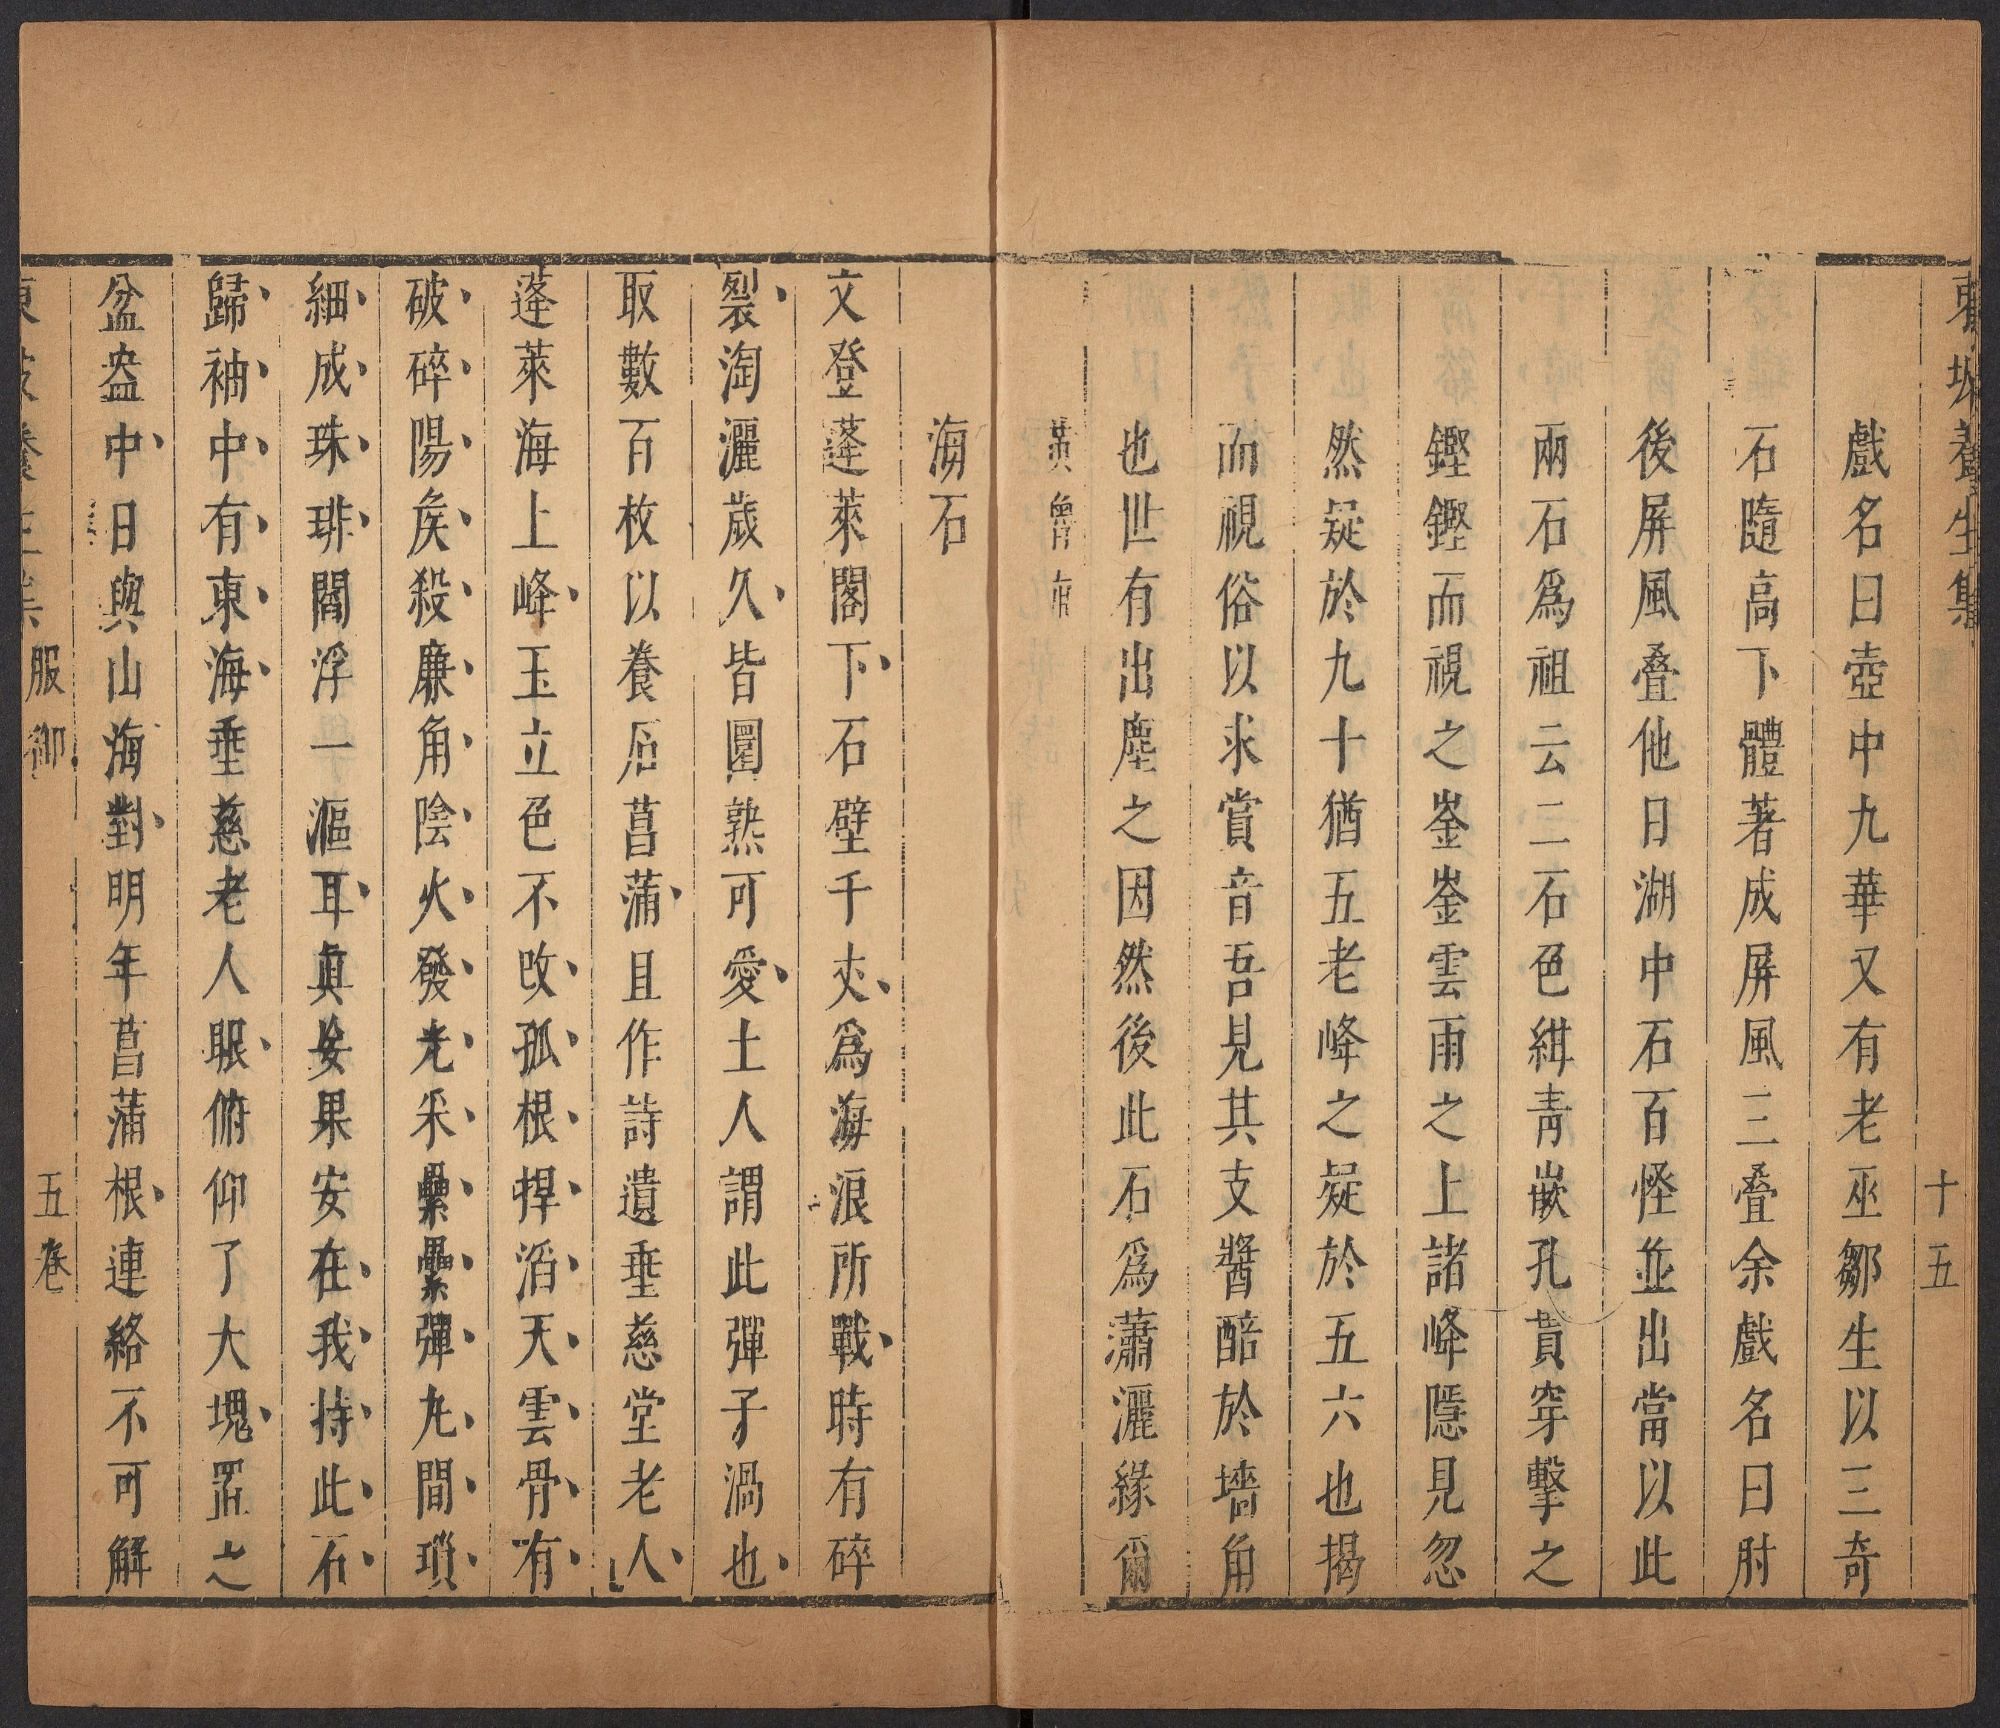 東坡養生集
十五
戲名曰壺中九華又有老巫鄒生以三奇
石隨高下體著成屏風三叠余戲名曰肘
後屏風叠他日湖中石百怪並出當以此
兩石爲祖云二石色紺青嵌孔貫穿擊之
鏗鏗而視之崟崟雲雨之上諸峰隱見忽
然疑於九十猶五老峰之疑於五六也揭
而視俗以求賞音吾見其支醬酷於墻角
也世有出塵之因然後此石爲瀟灑緣爾
黃魯直
海石
文登蓬萊閣下石壁千丈爲海浪所戰時有碎
裂淘灑歲久皆圓熟可愛土人謂此彈子渦也
取數百枚以養石菖蒲且作詩遺垂慈堂老人
蓬萊海上峰玉立色不改孤根捍滔天雲骨有
破碎陽矦殺廉角陰火發光采纍纍彈丸間瑣
細成珠琲閻浮一漚耳真妄果安在我持此石
歸袖中有東海垂慈老人眼俯仰了大塊置之
盆盎中日與山海對明年菖蒲根連絡不可解
東坡養生集 服御 五卷